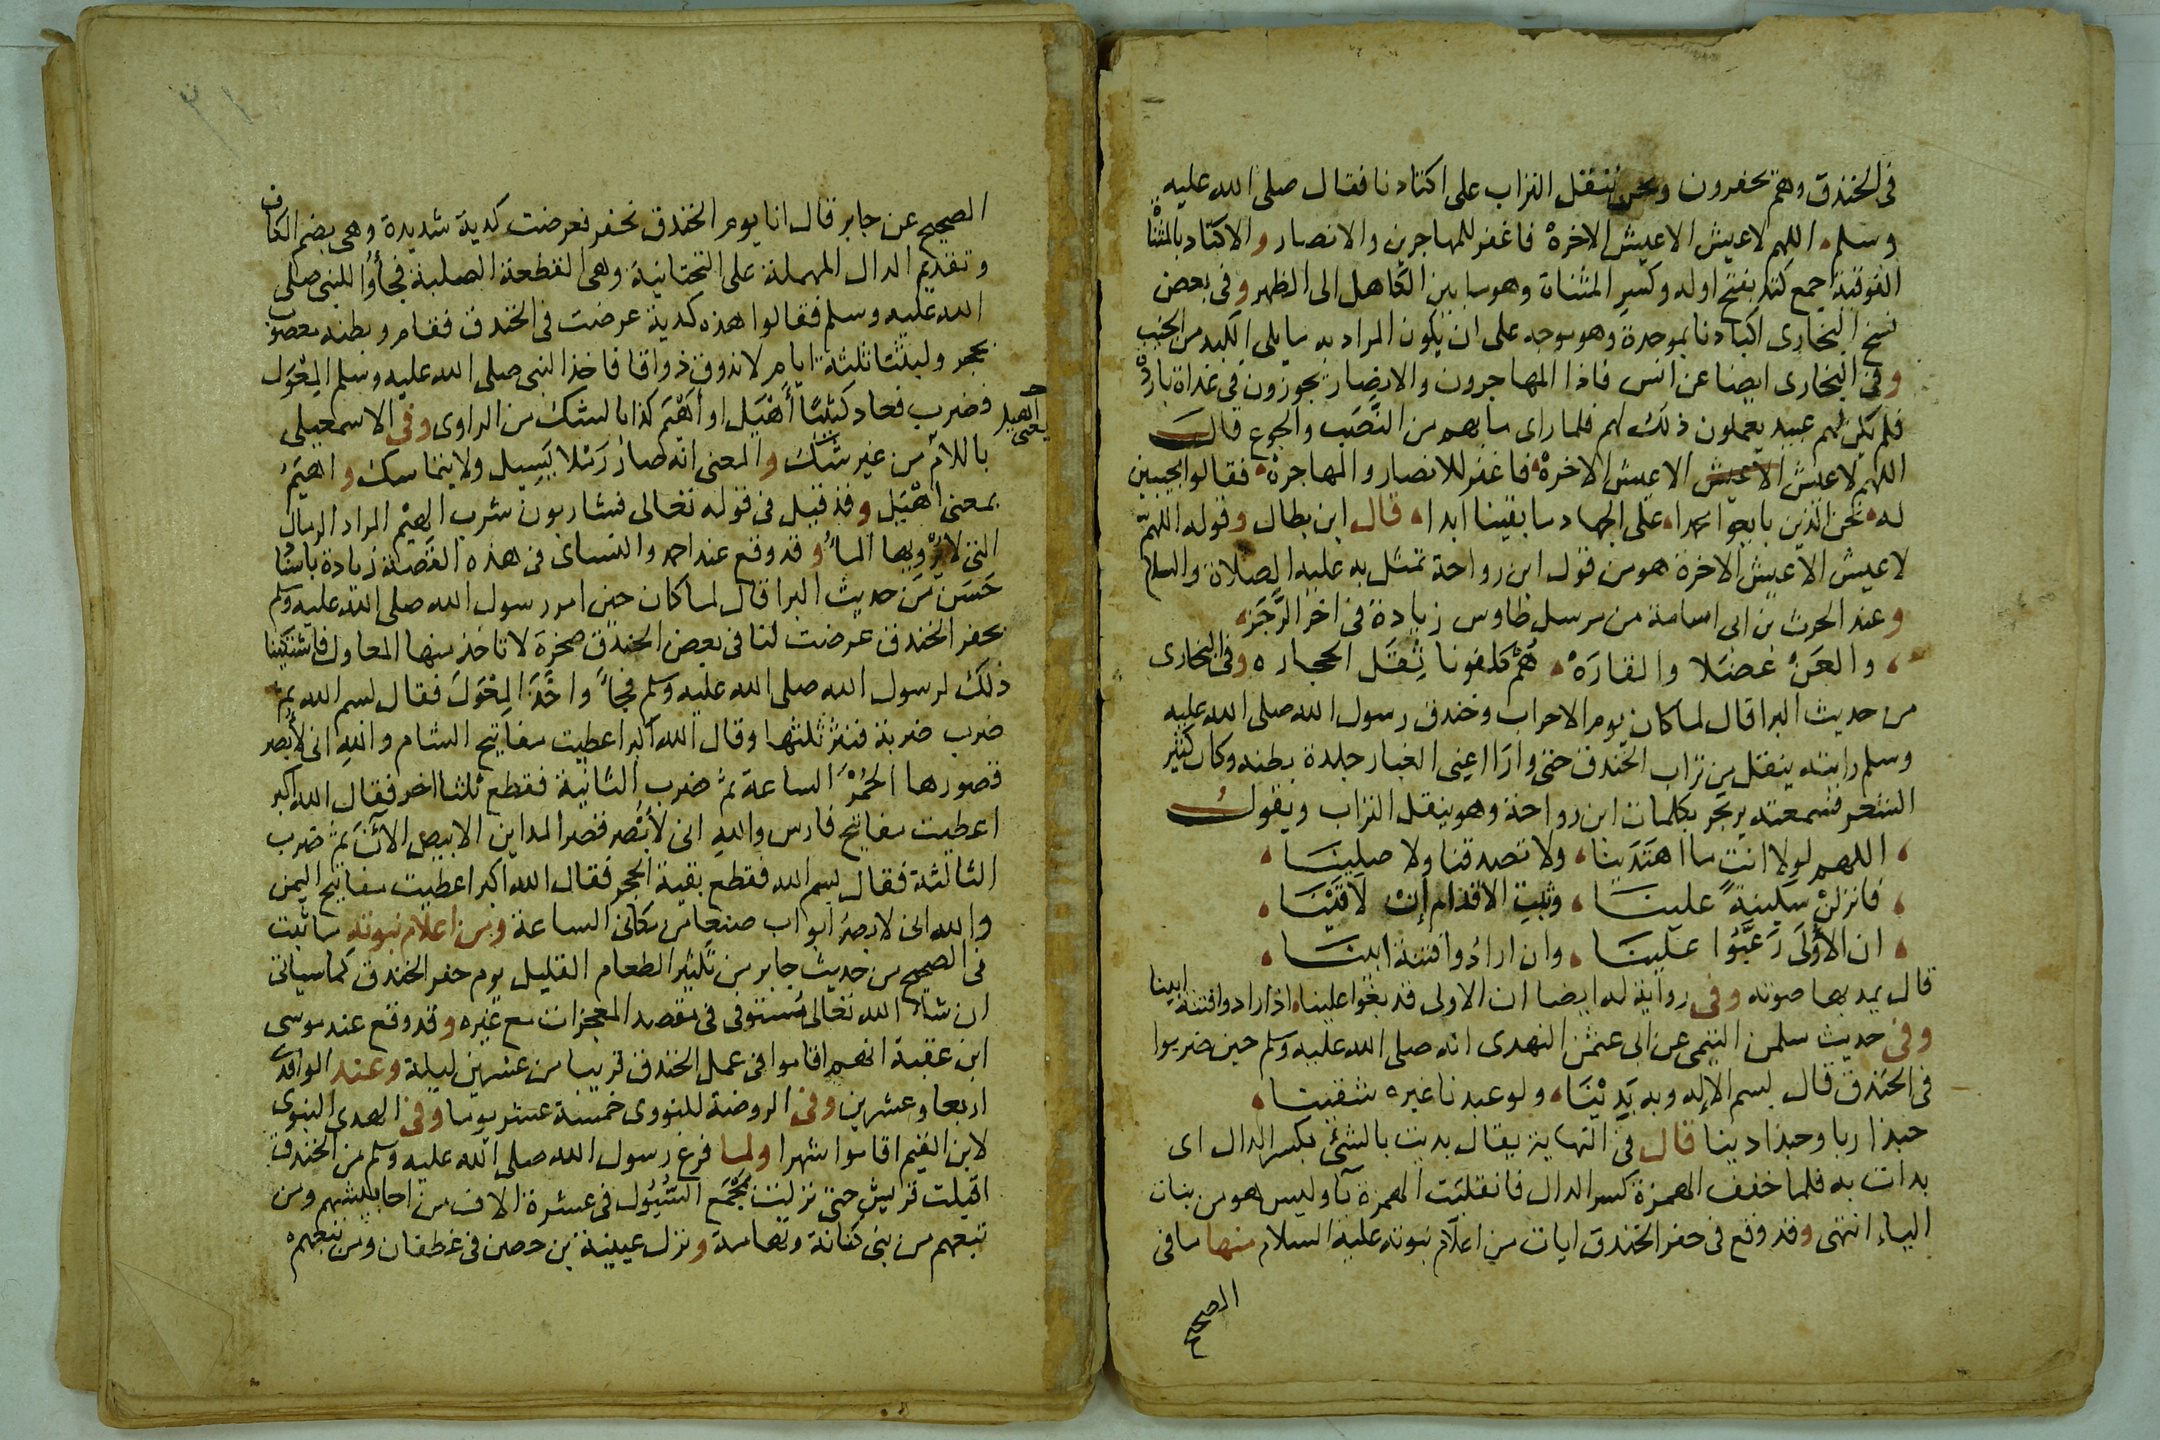 فى الخندق وهم يحفرون ونحن ننقل التراب على اكتادنا فقال صلى الله عليه
وسلم اللهم لا عيش الا عيش الاخرة فاغفر للمهاجرين والانصار والاكتاد بالمثناة
الفوقية جمع كتد بفتح اوله وكسر المثناة وهو ما بين الكاهل الى الظهر وفى بعض
نسخ البخارى اكبادنا بموحدة وهو موجه على ان يكون المراد به ما يلى الكبد من الجنب
وفى البخارى ايضا عن انس فاذا المهاجرون والانصار يحفرون فى غداة باردة
فلم يكن لهم عبيد يعملون ذلك لهم فلما راى ما بهم من النَّصَب والجوع قال
اللهم لا عيش الا عيش الا عيش الاخرة فاغفر للانصار والمهاجرة فقالوا مجيبين
له نحن الذين بايعوا محمدا على الجهاد ما بقينا ابدا قال ابن بطال وقوله اللهمّ
لا عيش الا عيش الاخرة هو من قول ابن رواحة تمثل به عليه الصلاة والسلم
وعند الحرث بن ابى اسامة من مرسل طاوس زيادة فى اخر الرَّجَز
والعن عضلا والقارَهْ هُمْ كلفونا نِقَل الحجاره وفى البخارى
من حديث البرا قال لما كان يوم الاحزاب وخندق رسول الله صلى الله عليه
وسلم رايته ينقل من تراب الخندق حتى وارَا عنى الغبار جلدة بطنه وكان كثير
الشعر فسمعته يرتجز بكلمات ابن رواحة وهو ينقل التراب ويقول
اللهم لولا انت ما اهتَدَينا ولا تصدقنا ولا صلينا
فانزلنْ سكينةً علينا وثبتِ الاقدام إنْ لاقَيْنَا
ان الأولَى رَغَّبُوا علينا وان ارادُوا فتنة ابينا
قال يمد بها صوته وفى رواية له ايضا ان الاولى قد بغوا علينا اذا ارادوا فتنة ابينا
وفى حديث سلمن التيمى عن ابى عثمن النهدى انه صلى الله عليه وسلم حين ضربوا
فى الخندق قال بسم الإله وبه بَدِيْنَا ولو عبدنا غيره شقينا
حبذا ربا وحبذا دينا قال فى النهاية يقال بديت بالشئ بكسر الدال اى
بدات به فلما خفف الهمزة كسر الدال فانقلبت الهمزة يآ وليس هو من بنات
الياء انتهى وقد وقع فى حفر الخندق ايات من اعلام نبوته عليه السلام منها ما فى
الصحيح
الصحيح عن جابر قال انا يوم الخندق نحفر فعرضت كدية شديدة وهى بضم الكاف
وتقديم الدال المهملة على التحتانية وهى القطعة الصلبة فجاؤا للنبى صلى
الله عليه وسلم فقالوا هذه كدية عرضت فى الخندق فقام وبطنه معصوب
بحجر ولبثنا ثلثة ايام لا نذوق ذواقا فاخذ النبى صلى الله عليه وسلم المِعْوَل
فضرب فعاد كثيبًا أَهْيَل او أَهْيَم كذا بالشك من الراوى وفى الاسمعيلى
باللام من غير شكّ والمعنى انه صار رَمْلا يَسِيل ولا يتماسك واهيَمُ
بمعنى اهْيَل وقد قيل فى قوله تعالى فشاربون شرب الهِيْم المراد الرمال
التى لا يُرْوِيها المآء وقد وقع عند احمد والنساى فى هذه القصة زيادة باسنا
حَسَن من حديث البرا قال لما كان حين امر رسول الله صلى الله عليه وسلم
بحفر الخندق عرضت لنا فى بعض الخندق صخرة لا تاخذ منها المعاول فاشتكينا
ذلك لرسول الله صلى الله عليه وسلم فجآء واخَذَ المِعْوَلَ فقال بسم الله ثم
ضرب ضربة فنثر ثلثها وقال الله اكبر اعطيت مفاتيح الشام والله انى لأبصر
قصورها الحُمْرَ الساعة ثم ضرب الثانية فقطع ثلثا اخر فقال الله اكبر
اعطيت مفاتيح فارس والله انى لأبْصر قصر المداين الابيض الآنَ ثم ضرب
الثالثة فقال بسم الله فقطع بقية الحجر فقال الله اكبر اعطيت مفاتيح اليمن
والله انى لابصرُ ابواب صنعا من مكانى الساعة ومن اعلام نبوته ما ثبت
فى الصحيح من حديث جابر من تكثير الطعام القليل يوم حفر الخندق كما سياتى
ان شاء الله تعالى مستوفى فى مقصد المعجزات مع غيره وقد وقع عند موسى
ابن عقبة انهم اقاموا فى عمل الخندق قريبا من عشرين ليلة وعند الواقدى
اربعا وعشرين وفى الروضة للنووى خمسة عشر يوما وفى الهدى النبوى
لابن القيم اقاموا شهرا ولما فرغ رسول الله صلى الله عليه وسلم من الخندق
اقبلت قريش حتى نزلت بمُجْمَع السُّيُول فى عشرة الاف من احابيشهم ومن
تبعهم من بنى كنانة وتهامة ونزل عيينة بن حصين فى غطفان ومن تبعهم